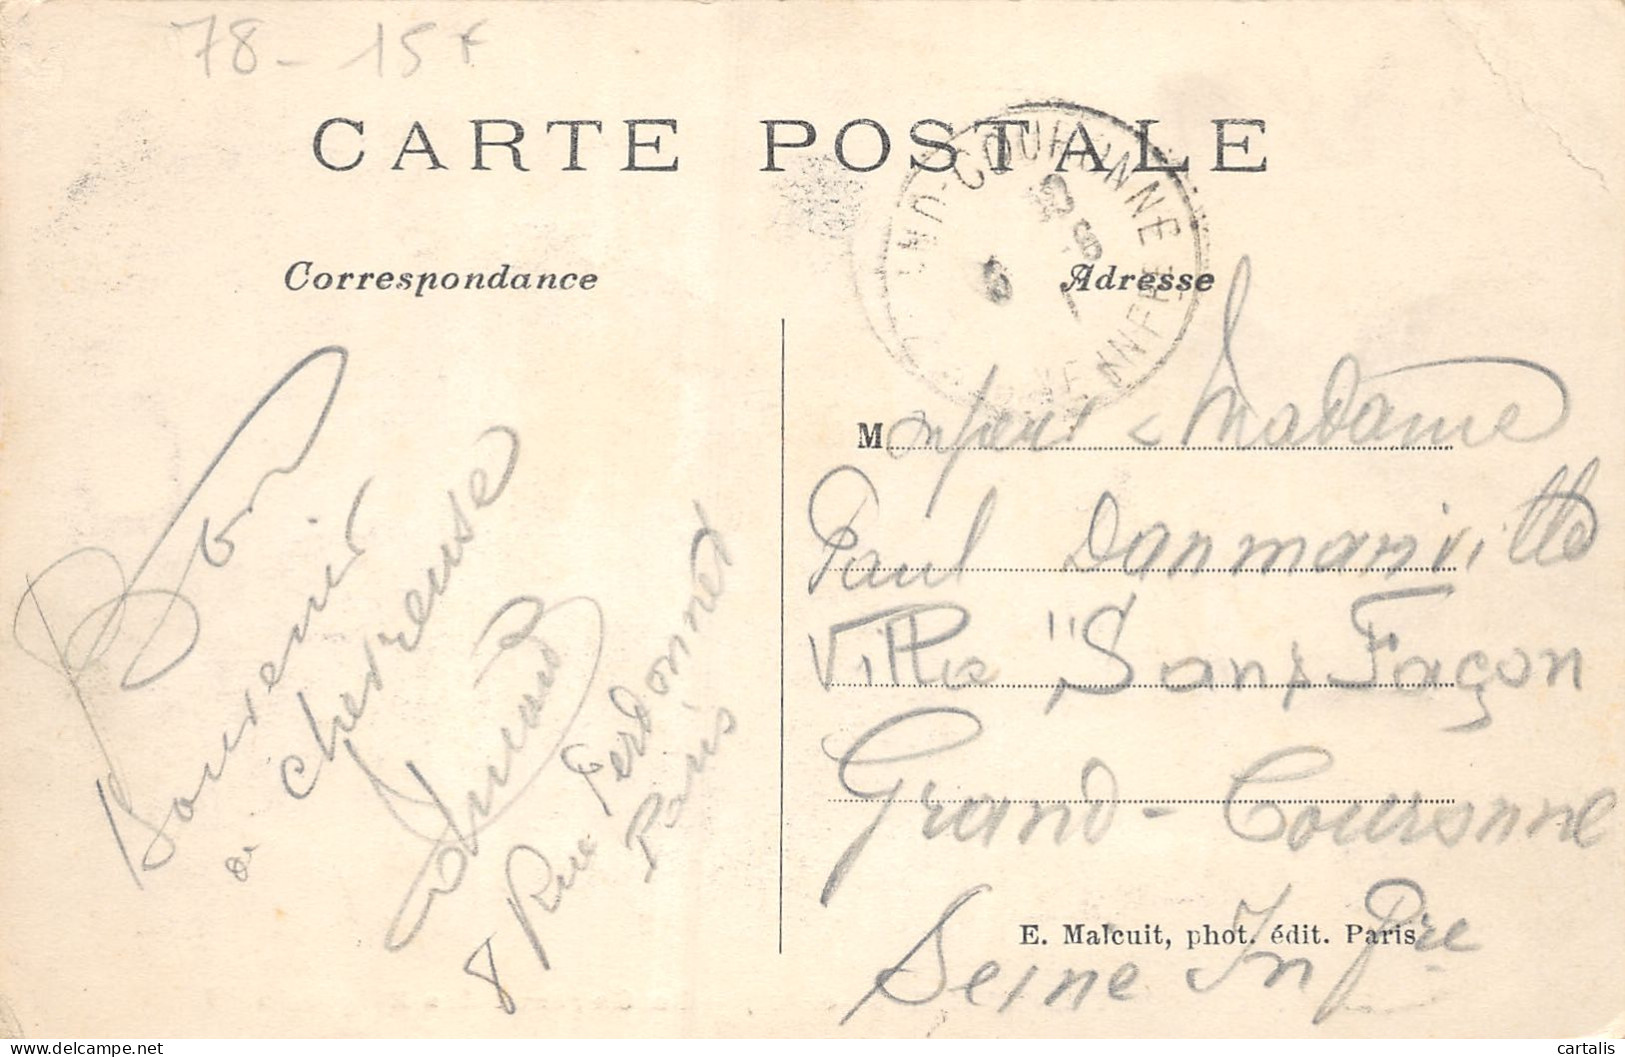 78 - 15 F
CARTE POSTALE
Correspondance
Adresse
Bon
Souvenir
de Chevreuse
8 Rue Perdonnet
Paris
Monsieur & Madame
Paul Danmanville
Villa "Sans Façon
Grand-Couronne
Seine Infre
E. Malcuit, phot. édit. Paris
COURONNE
INFRE
cartalis